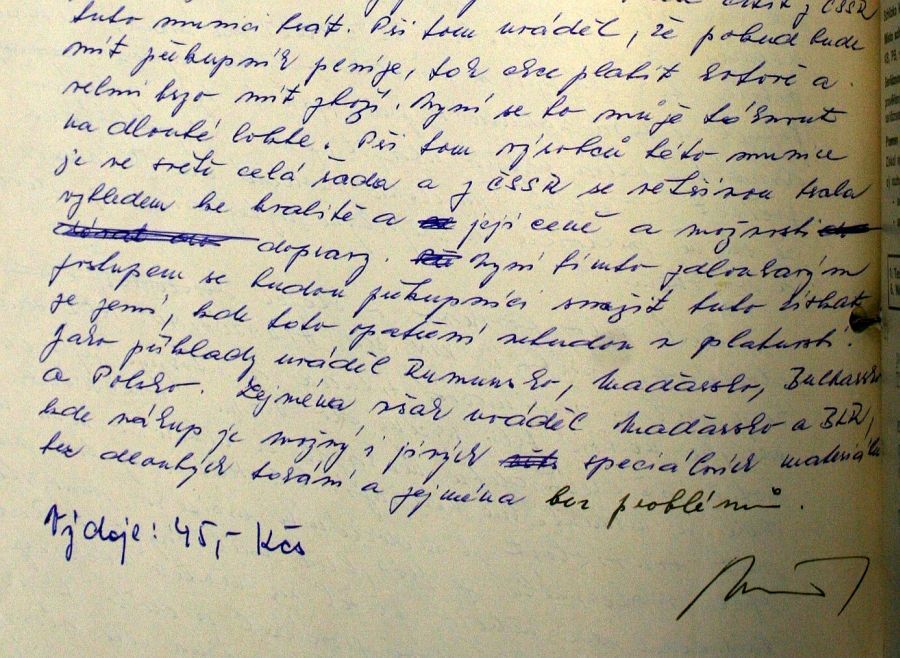 z ČSSR
tuto munici brát. Při tom uváděl, že pokud bude
mít překupník peníze, tak chce platit hotově a
velmi brzo mít zboží. Nyní se to může táhnout
na dlouhé lokte. Při tom výrobců této munice
je ve světě celá řada a z ČSSR se většinou brala
vzhledem ke kvalitě a její ceně a možnosti
dopravy. Nyní tímto zdlouhavým
postupem se budou překupníci snažit tuto získat
ze zemí, kde toto opatření nebudou v platnosti.
Jako příklady uváděl Rumunsko, Maďarsko, Bulharsko
a Polsko. Zejména však uváděl Maďarsko a BLR,
kde nákup je možný i jiných speciálních materiálů
bez dlouhých tahání a zejména bez problémů.
Výdaje: 45,- Kčs